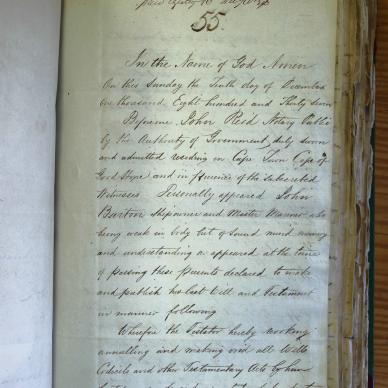 55.
In the Name of God Amen
On this Sunday the Tenth day of December
One thousand Eight hundred and Thirty Seven
Before me John Reid Notary Public
by the Authority of Government duly Sworn
and admitted residing in Cape Town Cape of
Good Hope and in presence of the Subscribed
Witnesses Personally appeared John
Barton Shipowner and Master Mariner who
being weak in body but of Sound mind memory
and understanding as appeared at the time
of passing these presents declared to make
and publish his last Will and Testament
in manner following
Wherefore the Testator hereby revoking
annulling and making void all Wills
Codicils and other Testamentary Acts by him